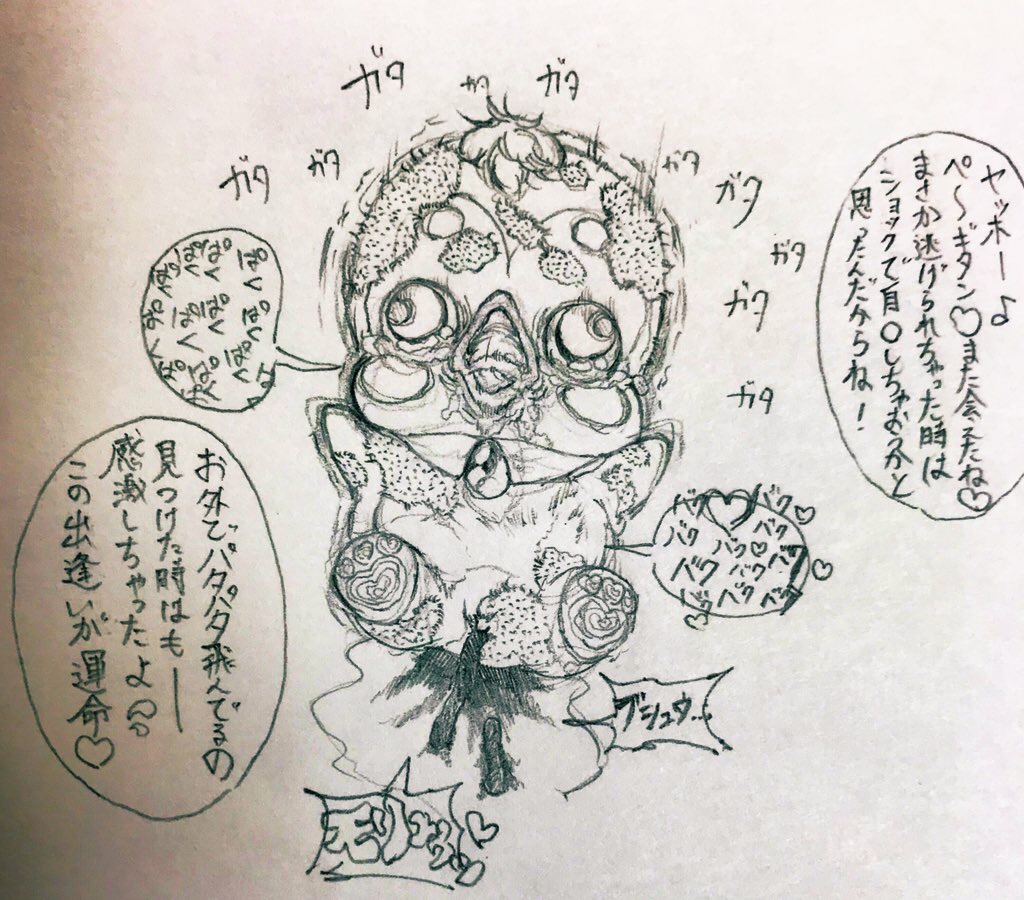 ヤッホー♪
ペ〜ギタン♡また会えたね♡
まさか逃げられちゃった時は
ショックで自〇しちゃおうかと
思ったんだからね！
ガタ
ガタ
ガタ
ガタ
ガタ
ガタ
ガタ
ガタ
ガタ
ガタ
ぱく
ぱく
ぱく
ぱく
ぱく
ぱく
ぱく
ぱく
ぱく
バク
バク
バク
バク
バク♡
バク
バク
バク
バク
バク
バク
お外でパタパタ飛んでるの
見つけた時はもー
感激しちゃったよ
この出逢いが運命♡
ブシュウ…